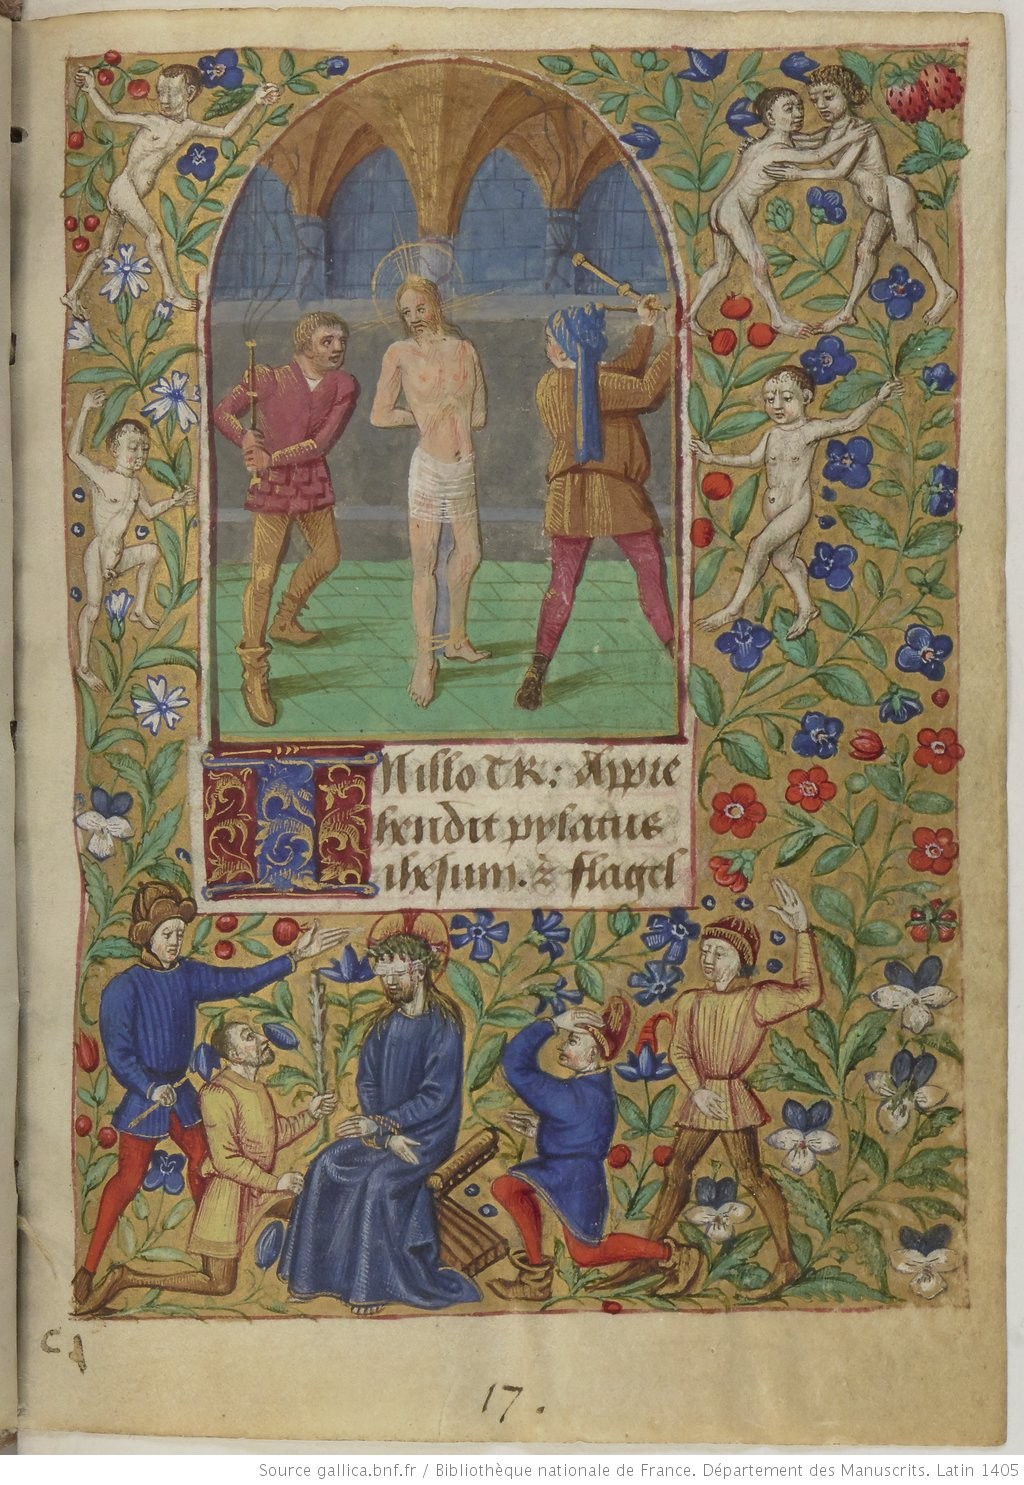 IN illo tꝑ: Appre
hendit pylatus
ihesum. ⁊ flagel
c d
17.
Source gallica.bnf.fr / Bibliothèque nationale de France. Département des Manuscrits. Latin 1405